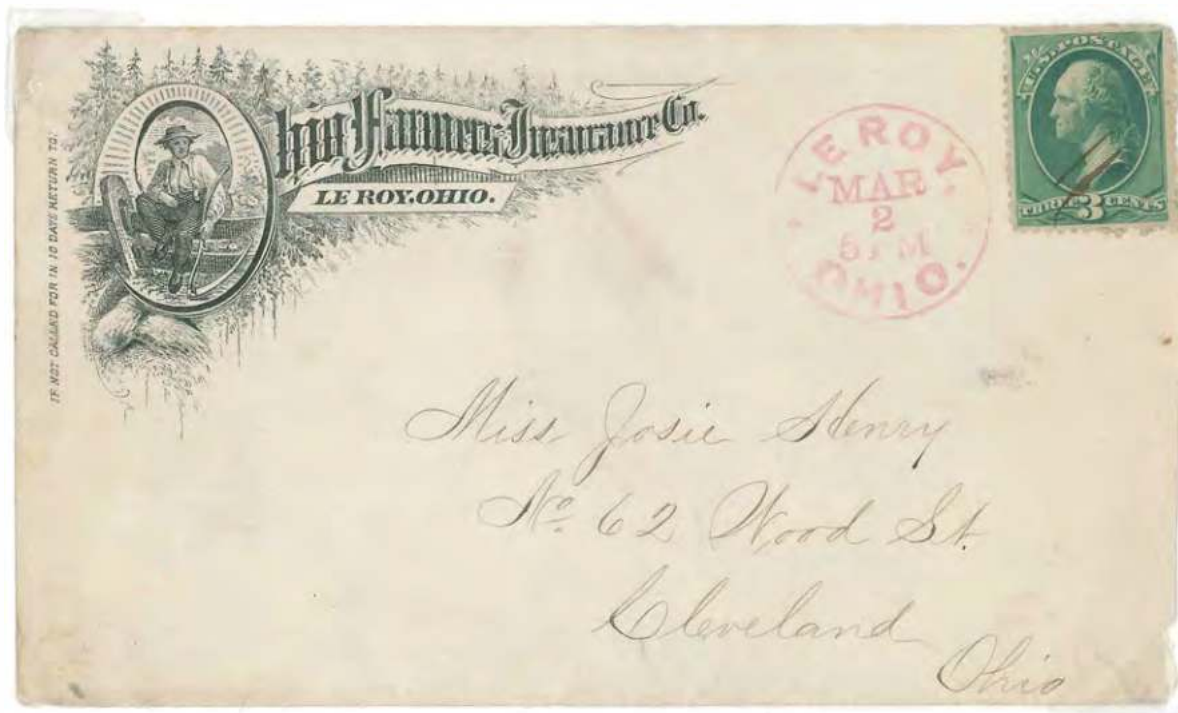 IF NOT CALLED FOR IN 10 DAYS RETURN TO:
Ohio Farmers Insurance Co.
LE ROY, OHIO.
LE ROY.
MAR
2
5 PM
OHIO.
U.S. POSTAGE
THREE 3 CENTS
Miss Josie Henry
No. 62 Wood St.
Cleveland
Ohio